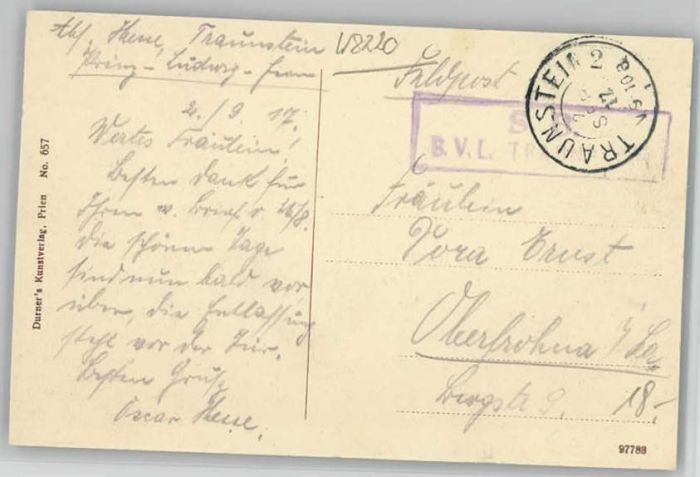 Abs. Hene, Traunstein
Prinz-Ludwig-
2./9. 17.
Wertes Fräulein!
Besten Dank für
Ihren w. Brief v. 26/8.
Die schönen Tage
sind nun bald vor
über, die Entlassung
steht vor der Tür.
Besten Gruß
Oscar Hene.
W8220
Feldpost
TRAUNSTEIN 2
B.V.L. TR
Fräulein
Dora Ernst
Oberfrohna i/Sa.
Bergstr 9.
18.-
Durner's Kunstverlag, Prien No. 657
97789